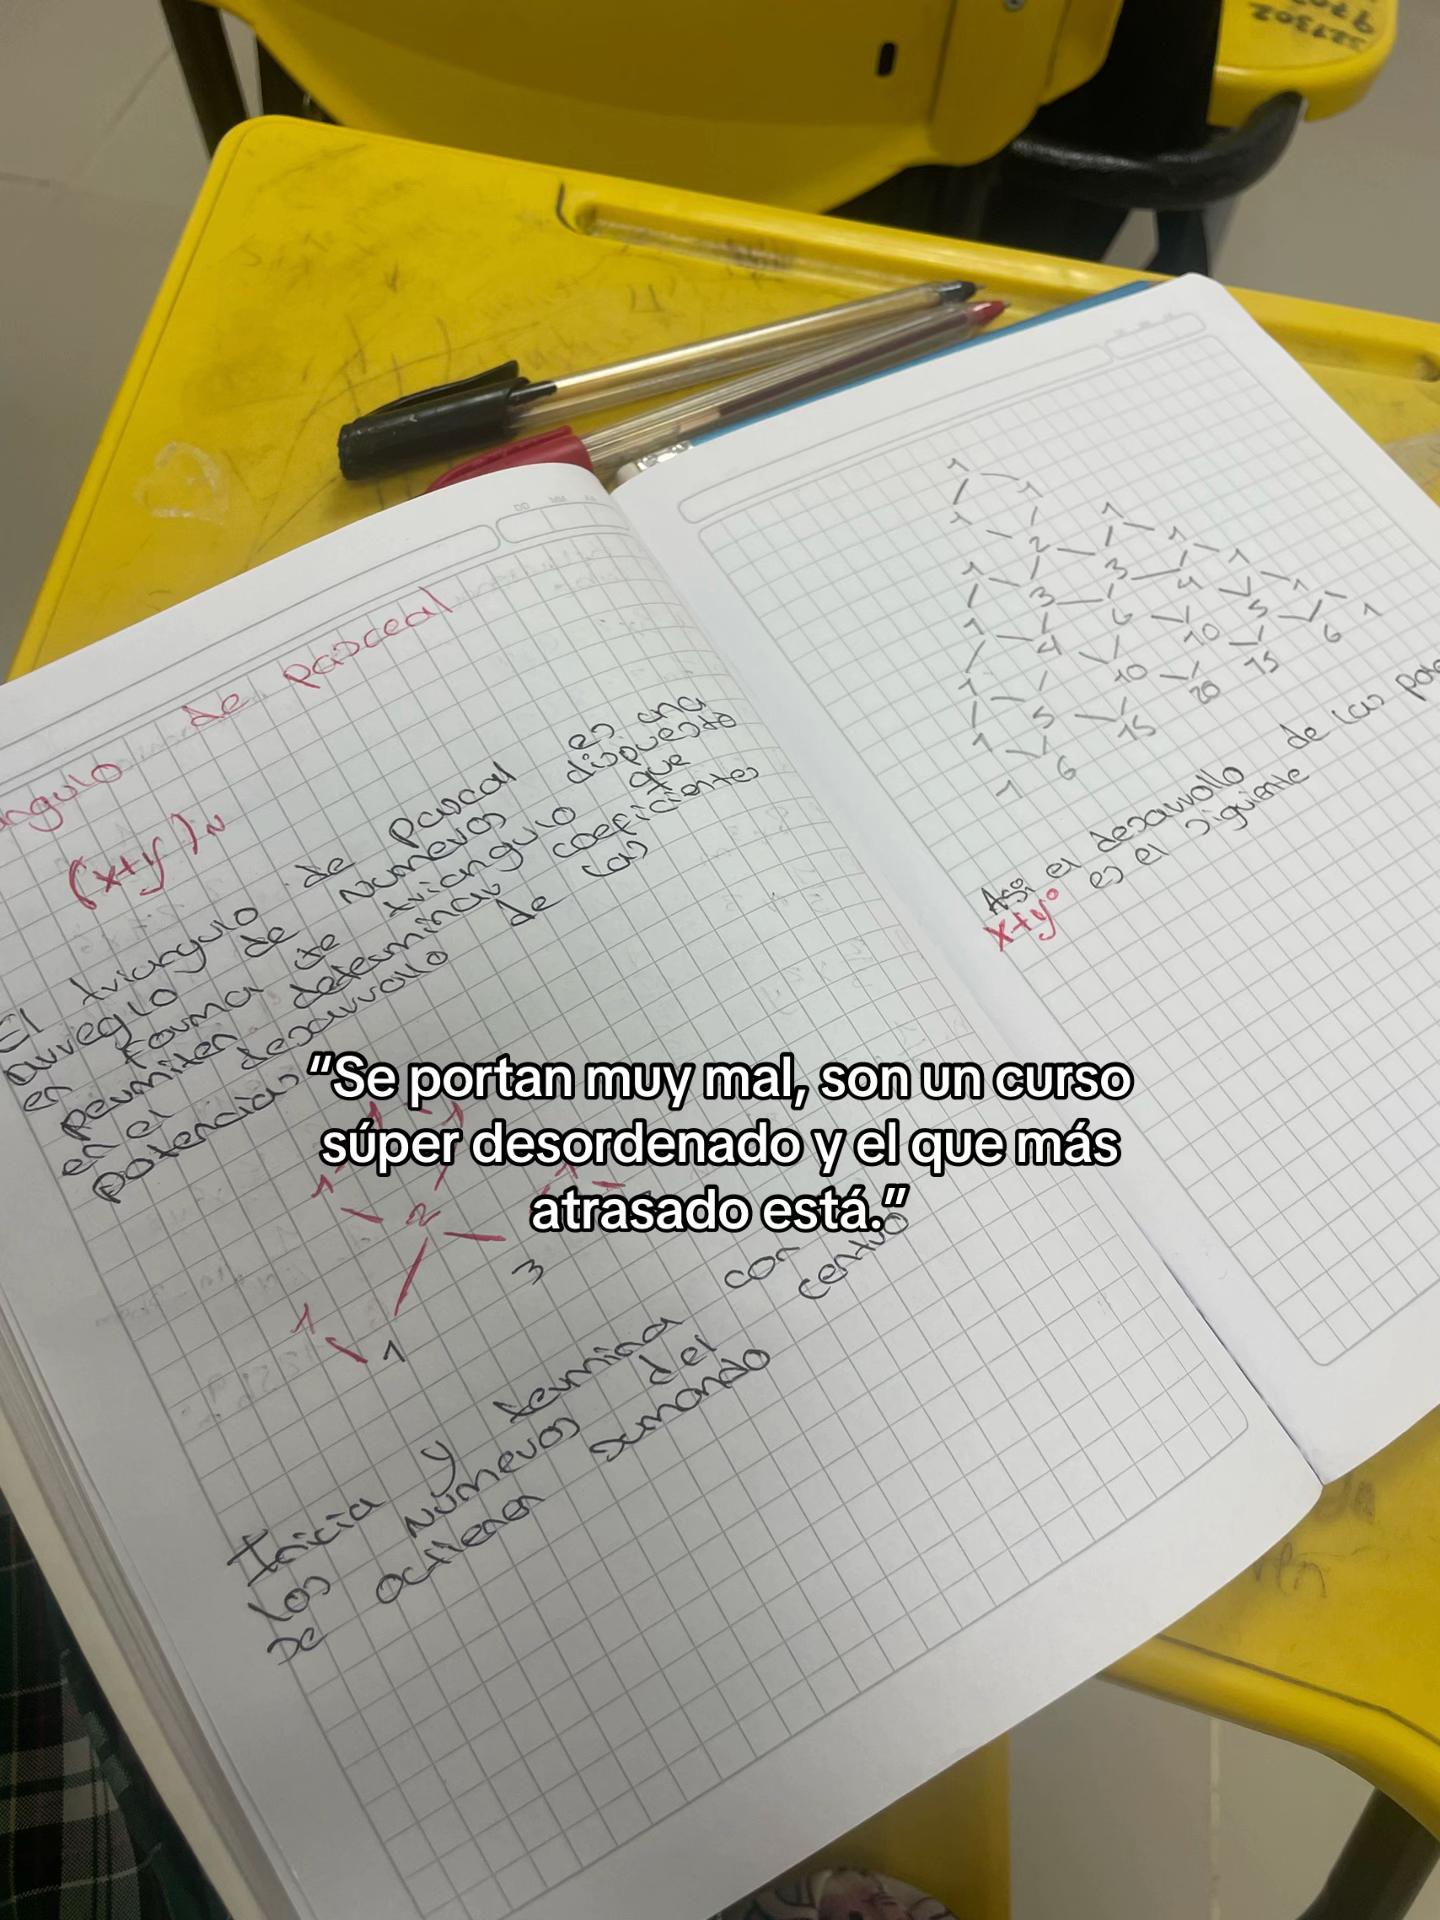 ngulo de pasceal
(x+y)n
El triangulo de pascal es una
arreglo de numeros dispuesto
en forma de triangulo que
permiten determinar coeficientes
en el desarrollo de las
potencias
1 1
1 2 1
3
1 1
Inicia y termina con
los números del centro
se octienen sumando
1 1 1 1 1 1 1
1 2 3 4 5 6
1 3 6 10 15
1 4 10 20
1 5 15
1 6
1
Así el desarrollo de las pote
es el siguiente
x+y⁰
“Se portan muy mal, son un curso
súper desordenado y el que más
atrasado está.”
327302